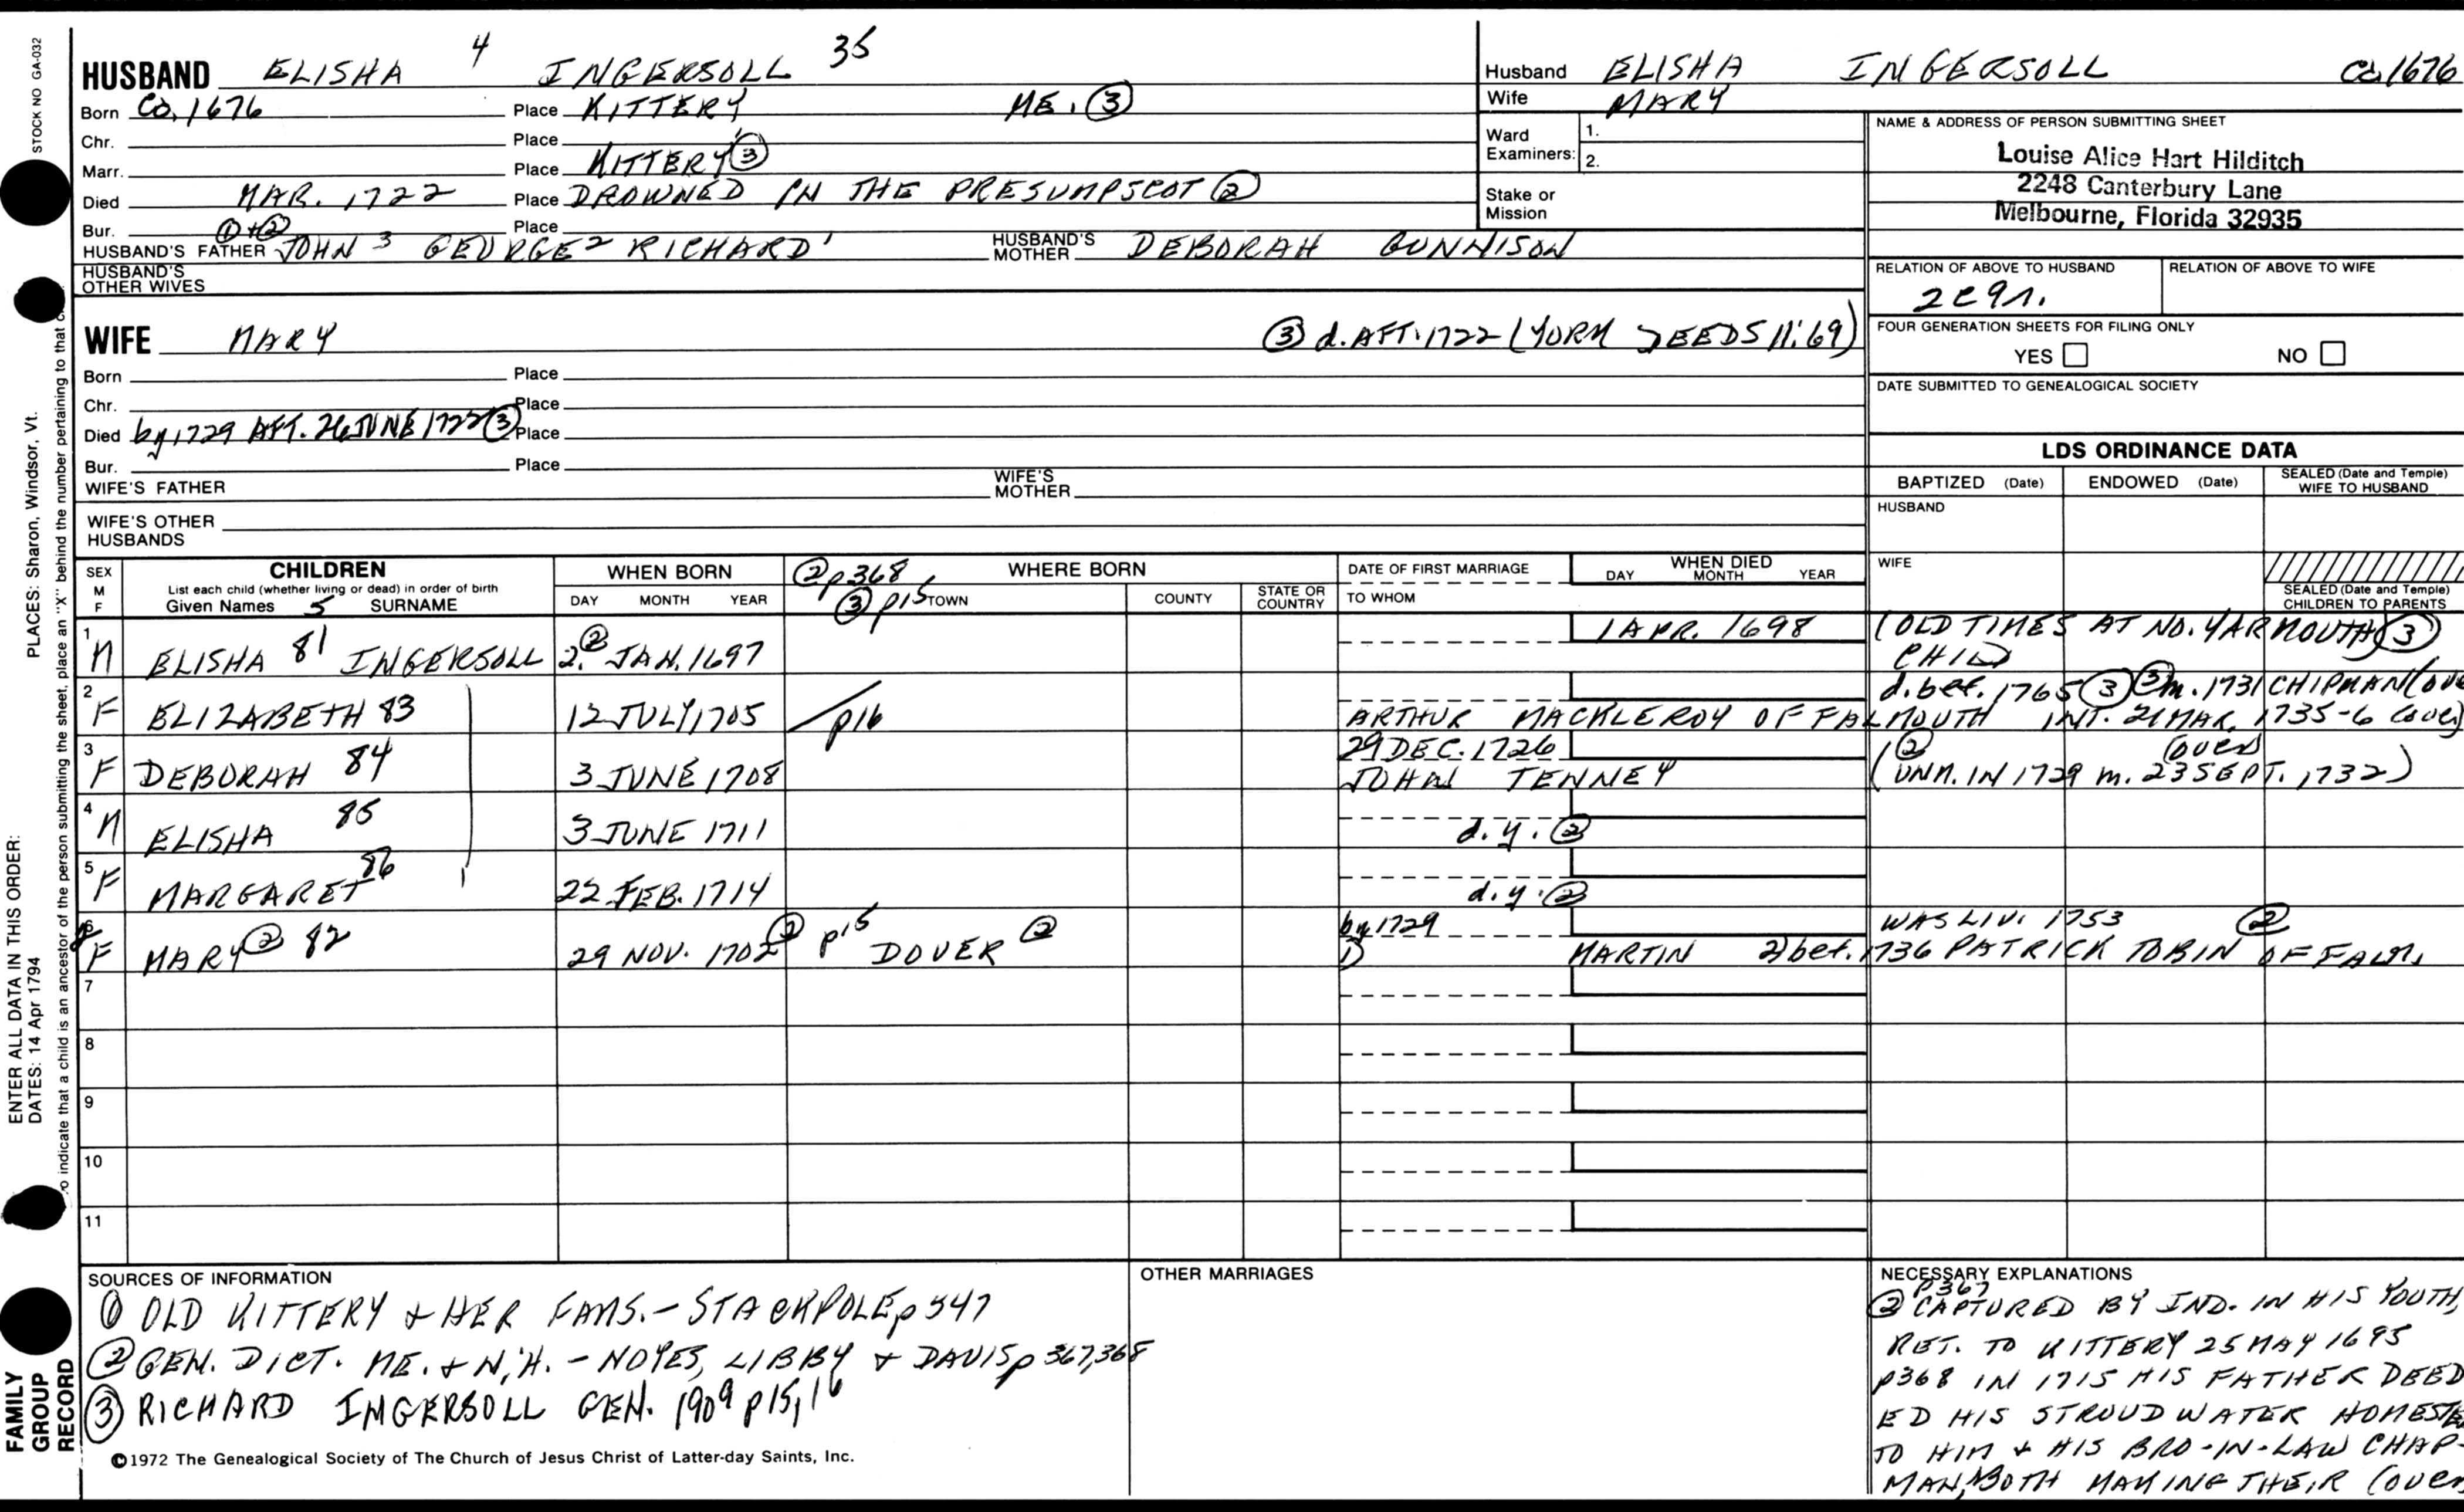 STOCK NO GA-032
HUSBAND ELISHA 4 INGERSOLL 35
Born Ca. 1676 Place KITTERY ME. ③
Chr. Place
Marr. Place KITTERY ③
Died MAR. 1722 Place DROWNED IN THE PRESUMPSCOT ②
Bur. ①+② Place
HUSBAND'S FATHER JOHN 3 GEORGE 2 RICHARD 1 HUSBAND'S MOTHER DEBORAH GUNNISON
HUSBAND'S OTHER WIVES
WIFE MARY ③ d. AFT. 1722 (YORK DEEDS 11:69)
Born Place
Chr. Place
Died by 1729 AFT. 26 JUNE 1722 ③ Place
Bur. Place
WIFE'S FATHER WIFE'S MOTHER
WIFE'S OTHER HUSBANDS
Husband ELISHA INGERSOLL Ca 1676
Wife MARY
Ward Examiners: 1.
2.
Stake or Mission
NAME & ADDRESS OF PERSON SUBMITTING SHEET
Louise Alice Hart Hilditch
2248 Canterbury Lane
Melbourne, Florida 32935
RELATION OF ABOVE TO HUSBAND RELATION OF ABOVE TO WIFE
FOUR GENERATION SHEETS FOR FILING ONLY
YES NO
DATE SUBMITTED TO GENEALOGICAL SOCIETY
LDS ORDINANCE DATA
BAPTIZED (Date) ENDOWED (Date) SEALED (Date and Temple) WIFE TO HUSBAND
HUSBAND
WIFE
SEALED (Date and Temple) CHILDREN TO PARENTS
SEX M F CHILDREN List each child (whether living or dead) in order of birth Given Names 5 SURNAME
WHEN BORN DAY MONTH YEAR
② p368 ③ p15 WHERE BORN TOWN COUNTY STATE OR COUNTRY
DATE OF FIRST MARRIAGE TO WHOM
WHEN DIED DAY MONTH YEAR
1 M ELISHA 81 INGERSOLL 2 ② JAN. 1697 1 APR. 1698 (OLD TIMES AT NO. YARMOUTH) ③ CHILD
2 F ELIZABETH 83 12 JULY 1705 p16 d. bef. 1765 ③ ③ m. 1731 CHIPMAN (ove
ARTHUR MACKLEROY OF FALMOUTH INT. 21 MAR. 1735-6 (over)
3 F DEBORAH 84 3 JUNE 1708 29 DEC. 1726 JOHN TENNEY (② (over) UNM. IN 1729 m. 23 SEPT. 1732)
4 M ELISHA 85 3 JUNE 1711 d.y. ②
5 F MARGARET 86 22 FEB. 1714 d.y. ②
6 F MARY ② 82 29 NOV. 1702 ② p15 DOVER ② by 1729 WAS LIV. 1753 ②
1) MARTIN 2) bet. 1736 PATRICK TOBIN OF FALM.
7
8
9
10
11
SOURCES OF INFORMATION
① OLD KITTERY & HER FAMS. - STACKPOLE p 547
② GEN. DICT. ME. & N.H. - NOYES, LIBBY & DAVIS p 367,368
③ RICHARD INGERSOLL GEN. 1909 p15,16
©1972 The Genealogical Society of The Church of Jesus Christ of Latter-day Saints, Inc.
OTHER MARRIAGES
NECESSARY EXPLANATIONS
p367
② CAPTURED BY IND. IN HIS YOUTH,
RET. TO KITTERY 25 MAY 1695
p368 IN 1715 HIS FATHER DEED
ED HIS STROUDWATER HOMESTE
TO HIM & HIS BRO-IN-LAW CHAP-
MAN, BOTH MAKING THEIR (over
PLACES: Sharon, Windsor, Vt.
ENTER ALL DATA IN THIS ORDER:
DATES: 14 Apr 1794
indicate that a child is an ancestor of the person submitting the sheet, place an "X" behind the number pertaining to that
FAMILY GROUP RECORD